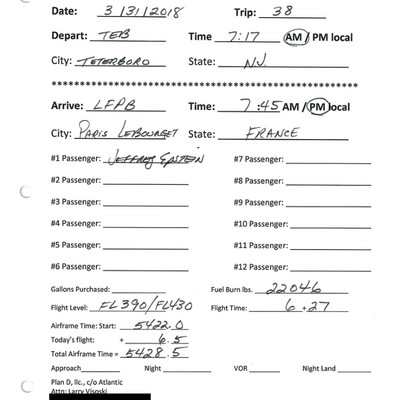 Date: 3/31/2018 Trip: 38
Depart: TEB Time 7:17 AM / PM local
City: TETERBORO State: NJ
********************************************************
Arrive: LFPB Time: 7:45 AM / PM local
City: PARIS LEBOURGET State: FRANCE
#1 Passenger: JEFFREY EPSTEIN #7 Passenger:
#2 Passenger: #8 Passenger:
#3 Passenger: #9 Passenger:
#4 Passenger: #10 Passenger:
#5 Passenger: #11 Passenger:
#6 Passenger: #12 Passenger:
Gallons Purchased: Fuel Burn lbs. 22046
Flight Level: FL390/FL430 Flight Time: 6+27
Airframe Time: Start: 5422.0
Today's flight: + 6.5
Total Airframe Time = 5428.5
Approach Night VOR Night Land
Plan D, llc., c/o Atlantic
Attn: Larry Visoski